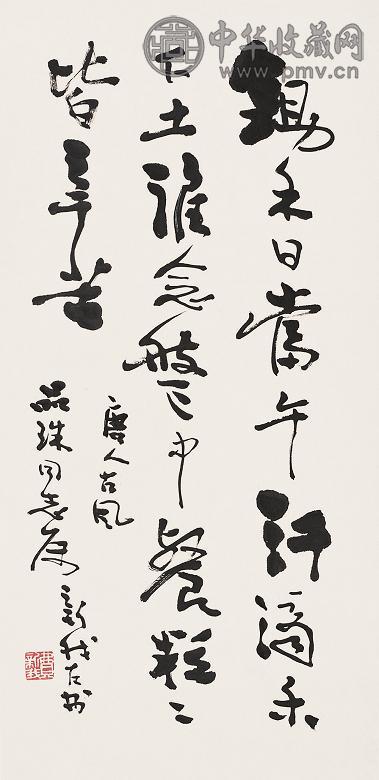 中华收藏网
www.pmv.cn
鋤禾日當午汗滴禾
下土誰念盤中餐粒〻
皆辛苦
唐人古風
品珠同志属
新我左书